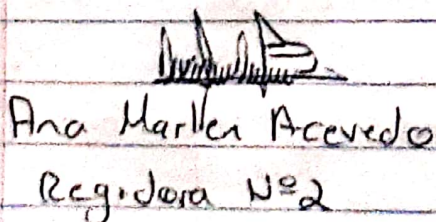 Ana Marllen Acevedo
Regidora Nº2